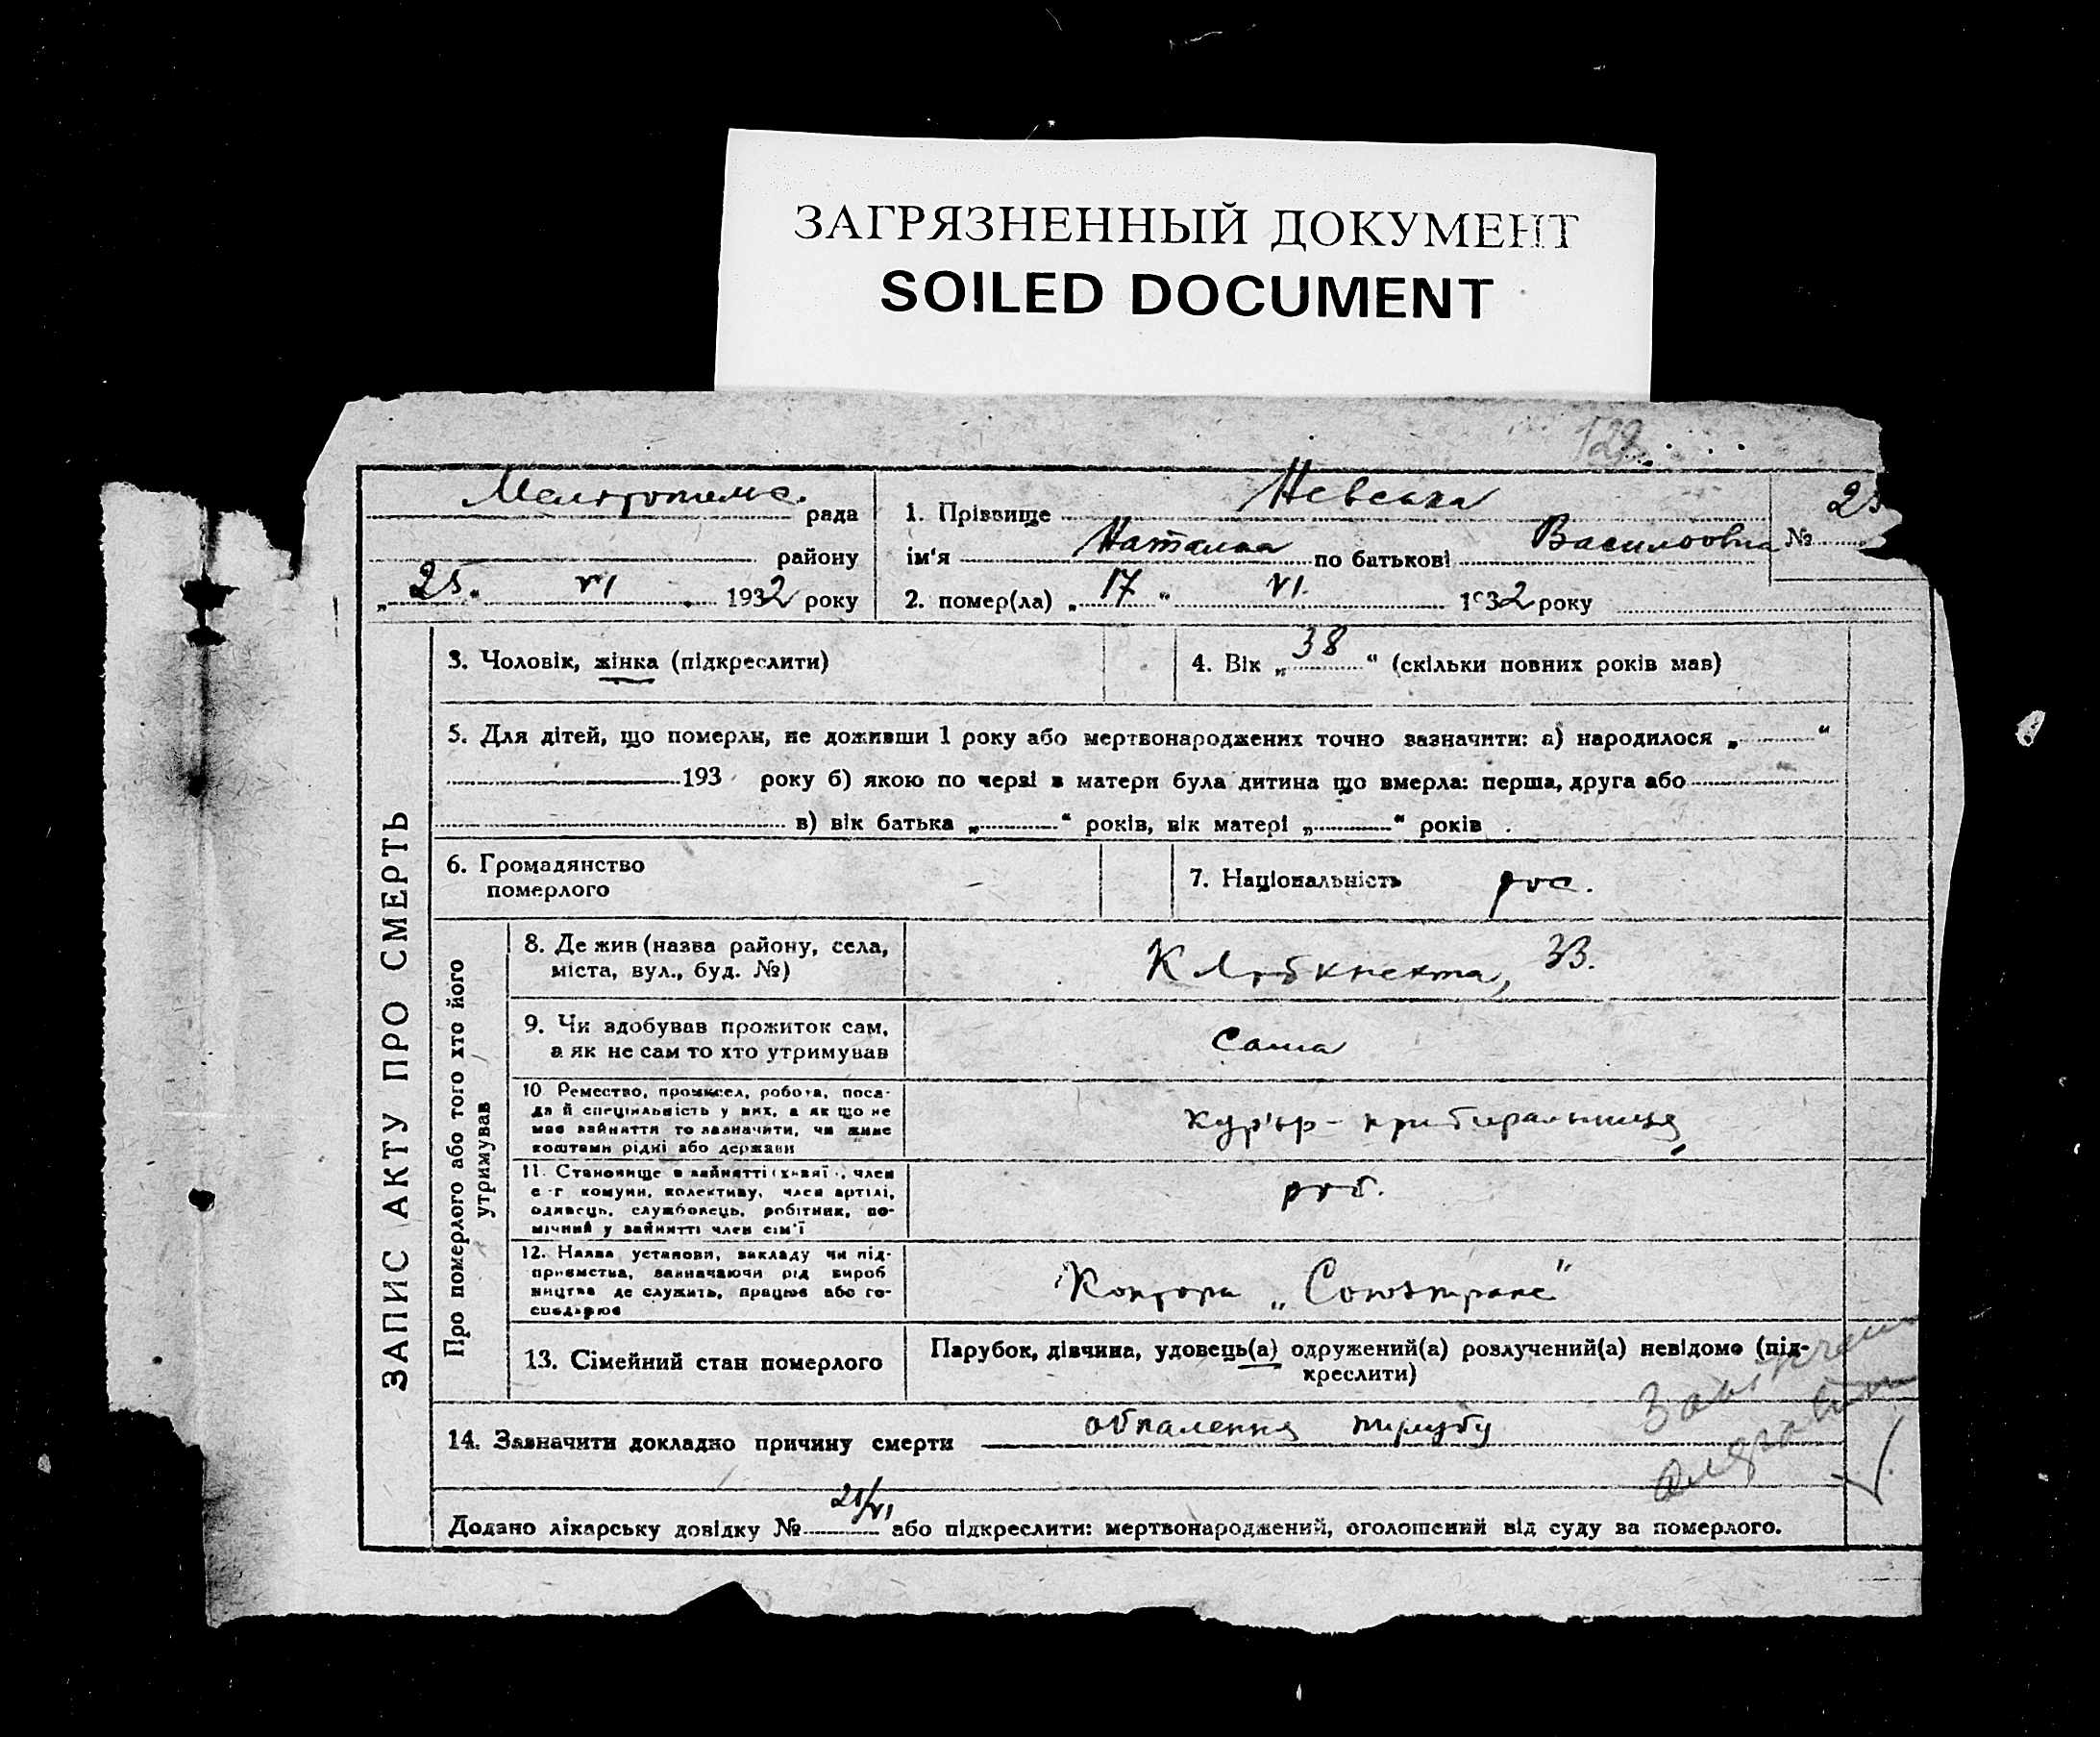 ЗАГРЯЗНЕННЫЙ ДОКУМЕНТ
SOILED DOCUMENT
129
Мелітопільс. рада
району
„25“ VI 1932 року
1. Прізвище Невська
ім'я Наталка по батькові Василовна
№ 25
2. помер(ла) „17“ VI. 1932 року
ЗАПИС АКТУ ПРО СМЕРТЬ
3. Чоловік, жінка (підкреслити)
4. Вік „38“ (скільки повних років мав)
5. Для дітей, що померли, не доживши 1 року або мертвонароджених точно зазначити: а) народилося „ “
193 року б) якою по черзі в матери була дитина що вмерла: перша, друга або
в) вік батька „ “ років, вік матері „ “ років
6. Громадянство
померлого –
7. Національність рос.
Про померлого або того хто його
утримував
8. Де жив (назва району, села,
міста, вул., буд. №)
К Лібкнехта, 33.
9. Чи здобував прожиток сам,
а як не сам то хто утримував
Сама
10 Ремество, промисел, робота, поса-
да й спеціяльність у них, а як що не
має зайняття то зазначити, чи живе
коштами рідні або держави
кур'єр-прибиральниця
11. Становище в зайнятті (хазяї, член
с-г комуни, колективу, член артілі,
одинець, службовець, робітник, по-
мічний у зайнятті член сім'ї
роб.
12. Назва установи, закладу чи під-
приємства, зазначаючи рід вироб
ництва де служить, працює або го-
сподарює
Контора „Союзтранс“
13. Сімейний стан померлого
Парубок, дівчина, удовець(а) одружений(а) розлучений(а) невідомо (під-
креслити)
14. Зазначити докладно причину смерти обпалення тулубу
Додано лікарську довідку № 25/VI або підкреслити: мертвонароджений, оголошений від суду за померлого.